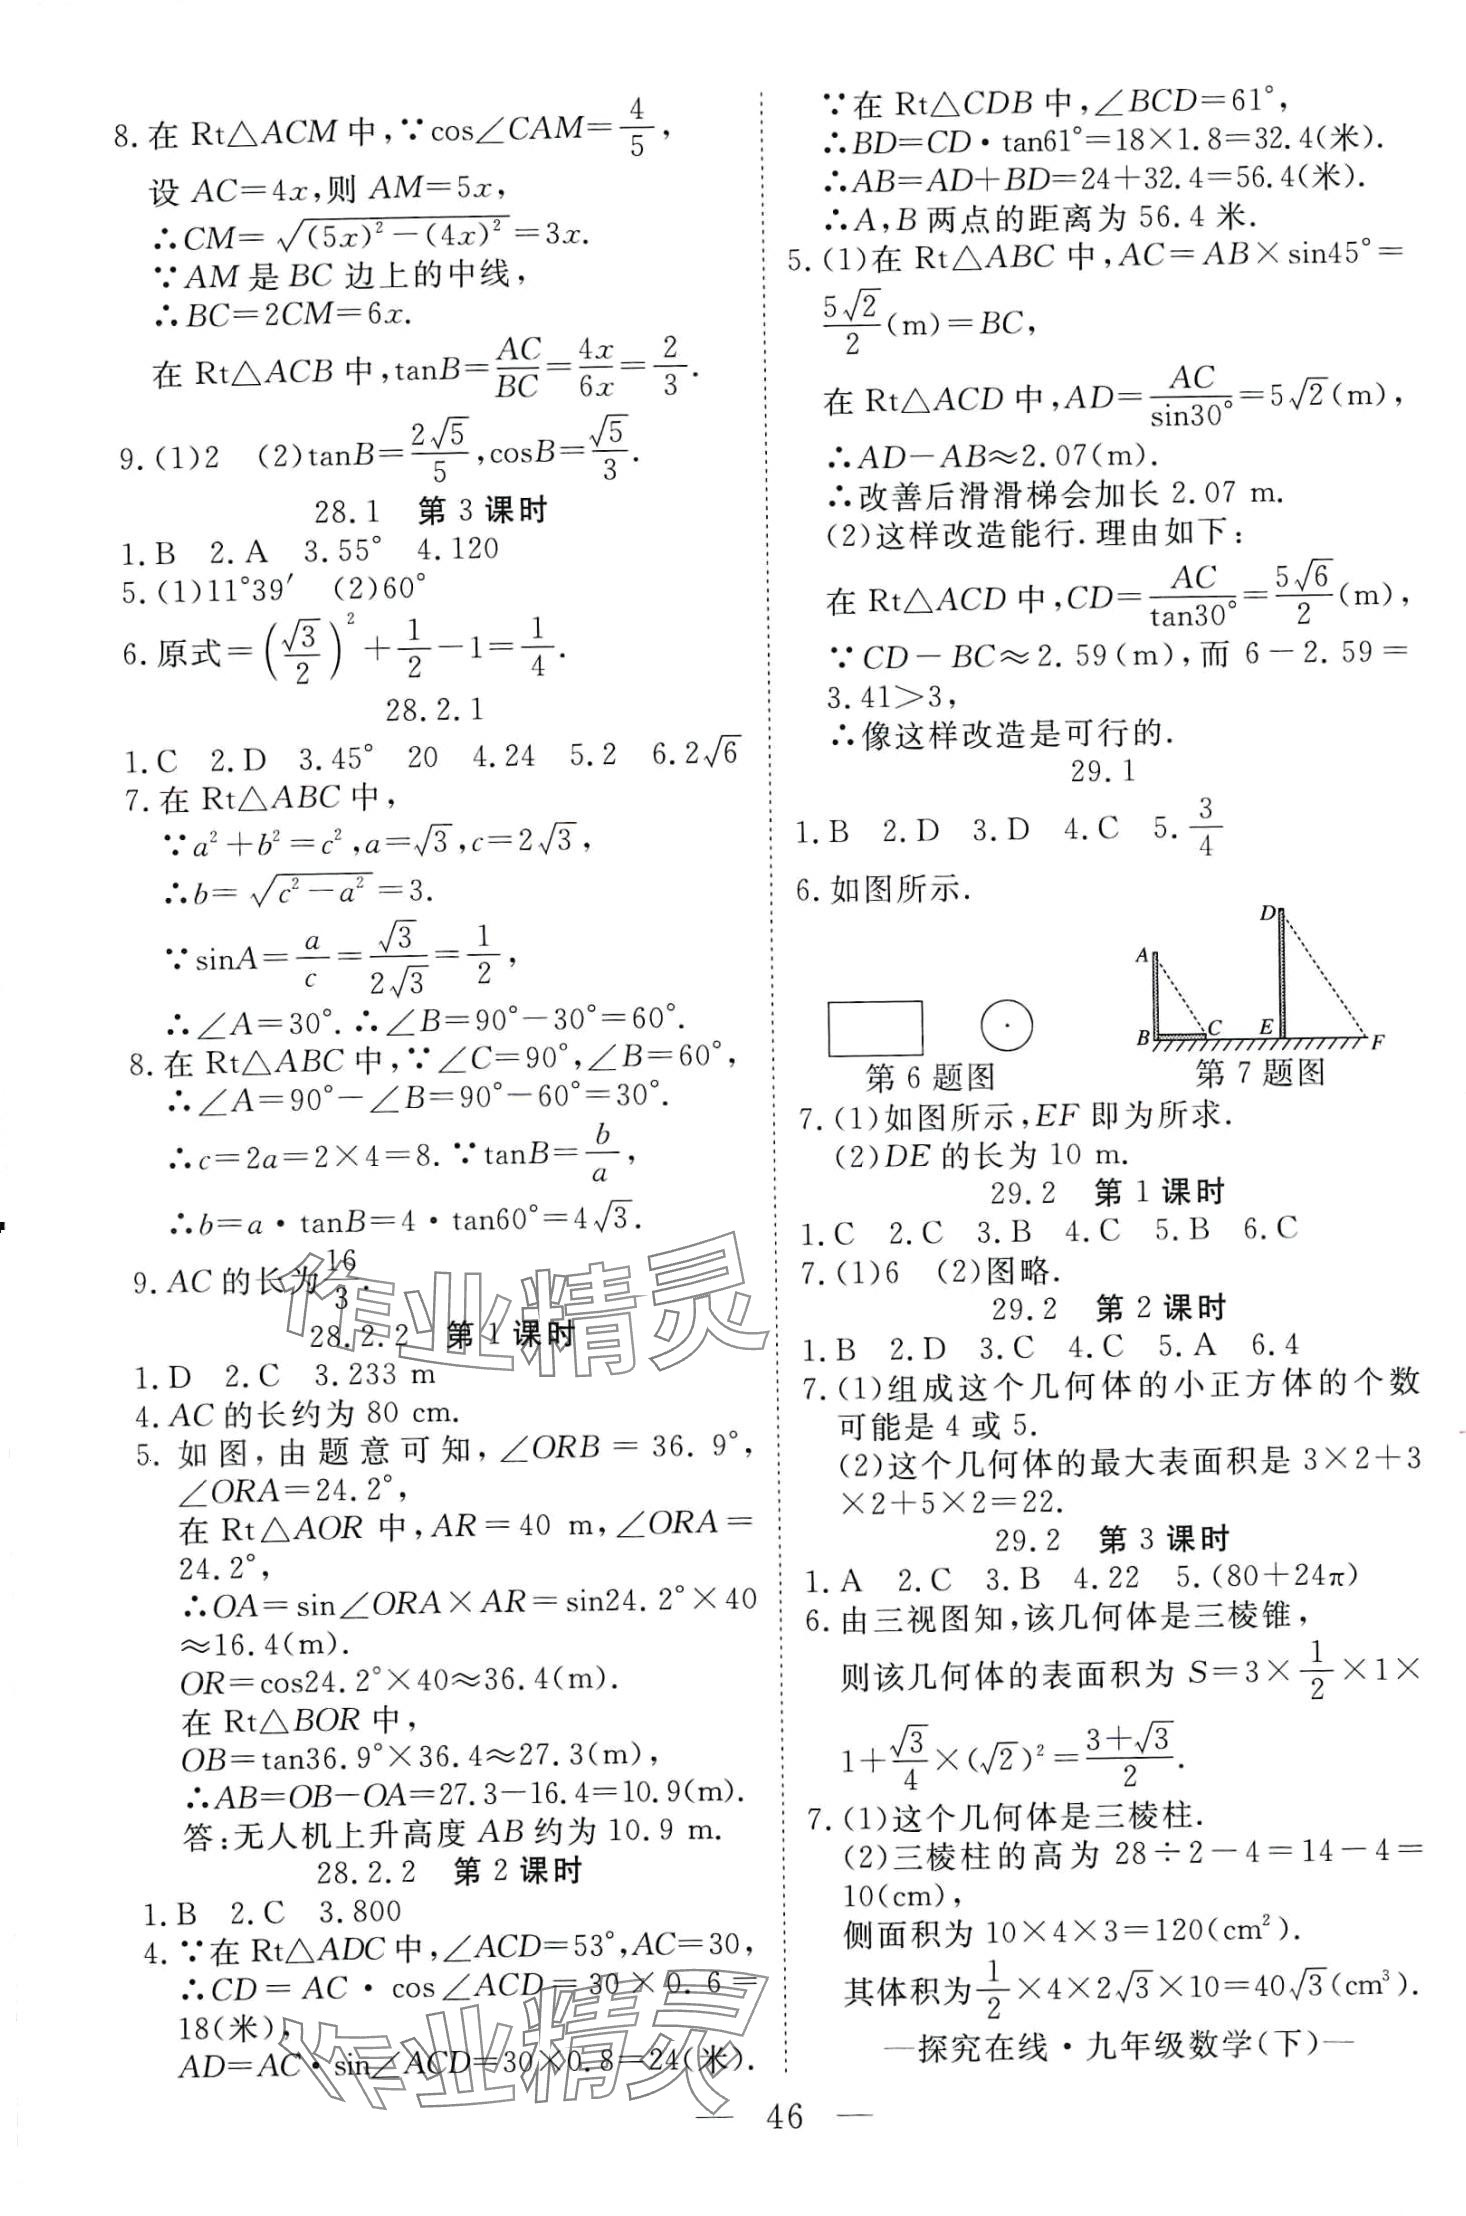 8.在 Rt△ACM 中,∵cos∠CAM=4/5,
设 AC=4x,则 AM=5x,
∴CM=√((5x)²-(4x)²)=3x.
∵AM 是 BC 边上的中线,
∴BC=2CM=6x.
在 Rt△ACB 中,tanB=AC/BC=4x/6x=2/3.
9.(1)2 (2)tanB=2√5/5,cosB=√5/3.
28.1 第 3 课时
1.B 2.A 3.55° 4.120
5.(1)11°39′ (2)60°
6.原式=(√3/2)²+1/2-1=1/4.
28.2.1
1.C 2.D 3.45° 20 4.24 5.2 6.2√6
7.在 Rt△ABC 中,
∵a²+b²=c²,a=√3,c=2√3,
∴b=√(c²-a²)=3.
∵sinA=a/c=√3/2√3=1/2,
∴∠A=30°.∴∠B=90°-30°=60°.
8.在 Rt△ABC 中,∵∠C=90°,∠B=60°,
∴∠A=90°-∠B=90°-60°=30°.
∴c=2a=2×4=8.∵tanB=b/a,
∴b=a·tanB=4·tan60°=4√3.
9.AC 的长为16/3.
28.2.2 第 1 课时
1.D 2.C 3.233 m
4.AC 的长约为 80 cm.
5.如图,由题意可知,∠ORB=36.9°,
∠ORA=24.2°,
在 Rt△AOR 中,AR=40 m,∠ORA=
24.2°,
∴OA=sin∠ORA×AR=sin24.2°×40
≈16.4(m).
OR=cos24.2°×40≈36.4(m).
在 Rt△BOR 中,
OB=tan36.9°×36.4≈27.3(m),
∴AB=OB-OA=27.3-16.4=10.9(m).
答:无人机上升高度 AB 约为 10.9 m.
28.2.2 第 2 课时
1.B 2.C 3.800
4.∵在 Rt△ADC 中,∠ACD=53°,AC=30,
∴CD=AC·cos∠ACD=30×0.6=
18(米),
AD=AC·sin∠ACD=30×0.8=24(米).
∵在 Rt△CDB 中,∠BCD=61°,
∴BD=CD·tan61°=18×1.8=32.4(米).
∴AB=AD+BD=24+32.4=56.4(米).
∴A,B 两点的距离为 56.4 米.
5.(1)在 Rt△ABC 中,AC=AB×sin45°=
5√2/2(m)=BC,
在 Rt△ACD 中,AD=AC/sin30°=5√2(m),
∴AD-AB≈2.07(m).
∴改善后滑滑梯会加长 2.07 m.
(2)这样改造能行.理由如下:
在 Rt△ACD 中,CD=AC/tan30°=5√6/2(m),
∵CD-BC≈2.59(m),而 6-2.59=
3.41>3,
∴像这样改造是可行的.
29.1
1.B 2.D 3.D 4.C 5.3/4
6.如图所示.
D
A
B
C
E
F
第 6 题图
第 7 题图
7.(1)如图所示,EF 即为所求.
(2)DE 的长为 10 m.
29.2 第 1 课时
1.C 2.C 3.B 4.C 5.B 6.C
7.(1)6 (2)图略.
29.2 第 2 课时
1.B 2.D 3.C 4.C 5.A 6.4
7.(1)组成这个几何体的小正方体的个数
可能是 4 或 5.
(2)这个几何体的最大表面积是 3×2+3
×2+5×2=22.
29.2 第 3 课时
1.A 2.C 3.B 4.22 5.(80+24π)
6.由三视图知,该几何体是三棱锥,
则该几何体的表面积为 S=3×1/2×1×
1+√3/4×(√2)²=(3+√3)/2.
7.(1)这个几何体是三棱柱.
(2)三棱柱的高为 28÷2-4=14-4=
10(cm),
侧面积为 10×4×3=120(cm²).
其体积为1/2×4×2√3×10=40√3(cm³).
—探究在线·九年级数学(下)—
— 46 —
作业精灵
作业精灵